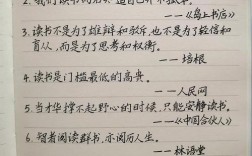 ——《岛上书店》
3. 读书不是为了雄辩和驳斥,也不是为了轻信和
盲从,而是为了思考和权衡。
——培根
4. 读书是门槛最低的高贵。
——人民网
5. 当才华撑不起野心的时候,只能安静读书。
——《中国合伙人》
6. 智者阅读群书,亦阅历人生。
——林语堂